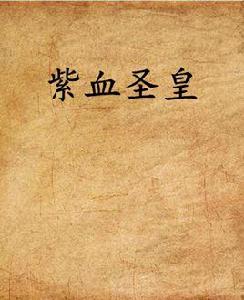 紫血圣皇